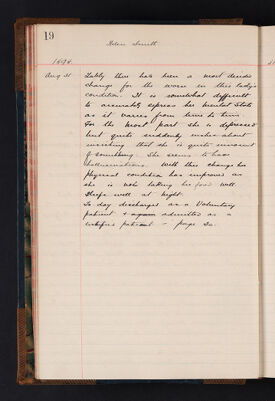 19
Helen Smith
1894
Aug 31 Lately there has been a most decided
change for the worse in this lady's
condition. It is somewhat difficult
to accurately express her mental state
as it varies from time to time.
For the most part she is depressed
but quite suddenly wakes about
insisting that she is quite innocent
of something. She seems to have
hallucinations. With this change her
physical condition has improved as
she is not taking her food well
Sleeps well at night.
To day discharged as a Voluntary
patient & again admitted as a
certified patient - page